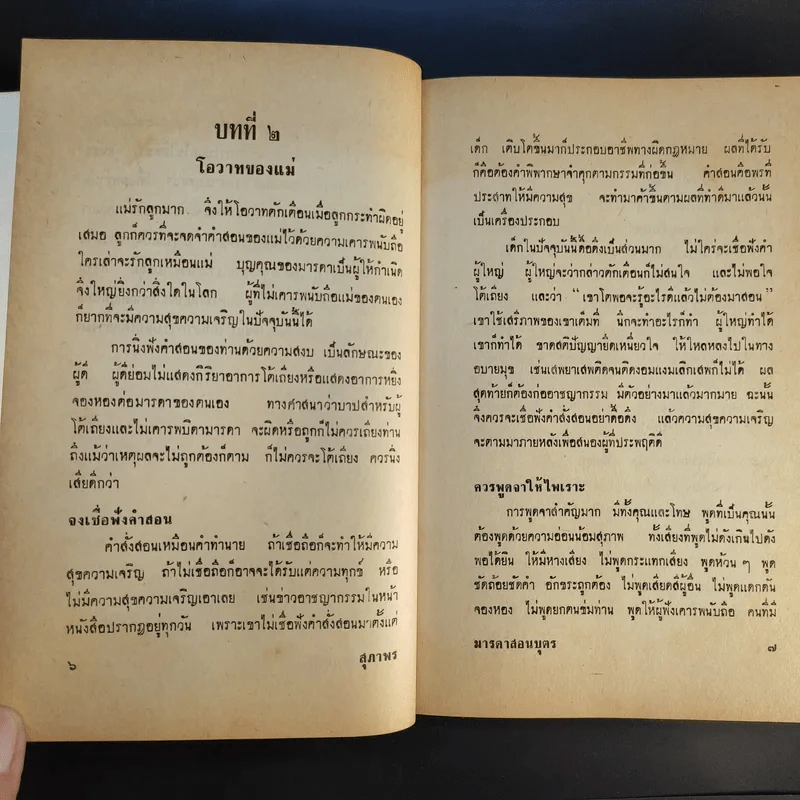 บทที่ ๒
โอวาทของแม่
แม่รักลูกมาก จึงให้โอวาทตักเตือนเมื่อลูกกระทำผิดอยู่
เสมอ ลูกก็ควรที่จะจดจำคำสอนของแม่ไว้ด้วยความเคารพนับถือ
ใครเล่าจะรักลูกเหมือนแม่ บุญคุณของมารดาเป็นผู้ให้กำเนิด
จึงใหญ่ยิ่งกว่าสิ่งใดในโลก ผู้ที่ไม่เคารพนับถือแม่ของตนเอง
ก็ยากที่จะมีความสุขความเจริญในปัจจุบันนี้ได้
การนิ่งฟังคำสอนของท่านด้วยความสงบ เป็นลักษณะของ
ผู้ดี ผู้ดีย่อมไม่แสดงกิริยาอาการโต้เถียงหรือแสดงอาการหยิ่ง
จองหองต่อมารดาของตนเอง ทางศาสนาว่าบาปสำหรับผู้
โต้เถียงและไม่เคารพบิดามารดา จะผิดหรือถูกก็ไม่ควรเถียงท่าน
ถึงแม้ว่าเหตุผลจะไม่ถูกต้องก็ตาม ก็ไม่ควรจะโต้เถียง ควรนิ่ง
เสียดีกว่า
จงเชื่อฟังคำสอน
คำสั่งสอนเหมือนคำทำนาย ถ้าเชื่อถือก็จะทำให้มีความ
สุขความเจริญ ถ้าไม่เชื่อถือก็อาจจะได้รับแต่ความทุกข์ หรือ
ไม่มีความสุขความเจริญเอาเลย เช่นข่าวอาชญากรรมในหน้า
หนังสือปรากฏอยู่ทุกวัน เพราะเขาไม่เชื่อฟังคำสั่งสอนมาตั้งแต่
๖ สุภาพร
เด็ก เติบโตขึ้นมาก็ประกอบอาชีพทางผิดกฎหมาย ผลที่ได้รับ
ก็คือต้องคำพิพากษาจำคุกตามกรรมที่ก่อขึ้น คำสอนคือพรที่
ประสาทให้มีความสุข จะทำมาค้าขึ้นตามผลที่ทำดีมาแล้วนั้น
เป็นเครื่องประกอบ
เด็กในปัจจุบันนี้ดื้อดึงเป็นส่วนมาก ไม่ใคร่จะเชื่อฟังคำ
ผู้ใหญ่ ผู้ใหญ่จะว่ากล่าวตักเตือนก็ไม่สนใจ และไม่พอใจ
โต้เถียง และว่า “เขาโตพอจะรู้อะไรดีแล้วไม่ต้องมาสอน”
เขาใช้เสรีภาพของเขาเต็มที่ นึกจะทำอะไรก็ทำ ผู้ใหญ่ทำได้
เขาก็ทำได้ ขาดสติปัญญายึดเหนี่ยวใจ ให้ไหลหลงไปในทาง
อบายมุข เช่นเสพยาเสพติดจนติดงอมแงมเลิกเสพก็ไม่ได้ ผล
สุดท้ายก็ต้องก่ออาชญากรรม มีตัวอย่างมาแล้วมากมาย ฉะนั้น
จึงควรจะเชื่อฟังคำสั่งสอนอย่าดื้อดึง แล้วความสุขความเจริญ
จะตามมาภายหลังเพื่อสนองผู้ที่ประพฤติดี
ควรพูดจาให้ไพเราะ
การพูดจาสำคัญมาก มีทั้งคุณและโทษ พูดที่เป็นคุณนั้น
ต้องพูดด้วยความอ่อนน้อมสุภาพ ทั้งเสียงที่พูดไม่ดังเกินไปดัง
พอได้ยิน ให้มีหางเสียง ไม่พูดกระแทกเสียง พูดห้วน ๆ พูด
ชัดถ้อยชัดคำ อักขระถูกต้อง ไม่พูดเสียดสีผู้อื่น ไม่พูดแดกดัน
จองหอง ไม่พูดยกตนข่มท่าน พูดให้ผู้ฟังเคารพนับถือ คนที่มี
มารดาสอนบุตร ๗